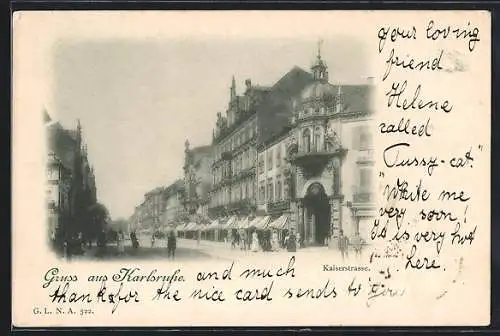 your loving
friend
Helene
called
Pussy-cat."
"Write me
very soon!
It is very hot
here.
Kaiserstrasse.
Gruss aus Karlsruhe. and much
thanks for the nice card sends to
G. L. N. A. 522.